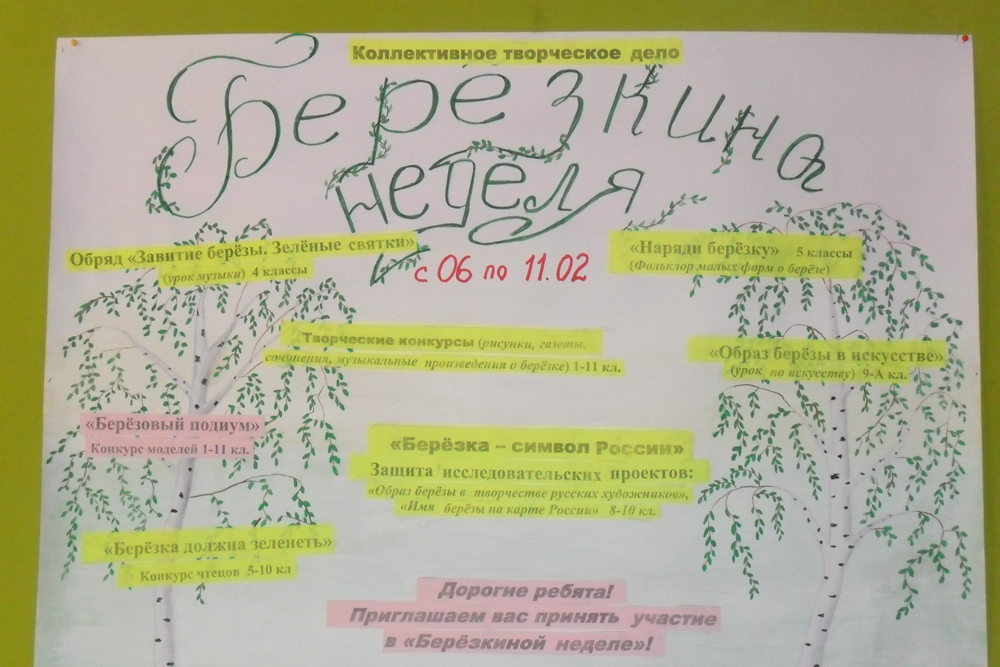 Коллективное творческое дело
Берёзкина
неделя
с 06 по 11.02
Обряд «Завитие берёзы. Зелёные святки»
(урок музыки) 4 классы
«Наряди берёзку» 5 классы
(Фольклор малых форм о берёзе)
Творческие конкурсы (рисунки, газеты,
сочинения, музыкальные произведения о берёзке) 1-11 кл.
«Образ берёзы в искусстве»
(урок по искусству) 9-А кл.
«Берёзовый подиум»
Конкурс моделей 1-11 кл.
«Берёзка – символ России»
Защита исследовательских проектов:
«Образ берёзы в творчестве русских художников»,
«Имя берёзы на карте России» 8-10 кл.
«Берёзка должна зеленеть»
Конкурс чтецов 5-10 кл
Дорогие ребята!
Приглашаем вас принять участие
в «Берёзкиной неделе»!